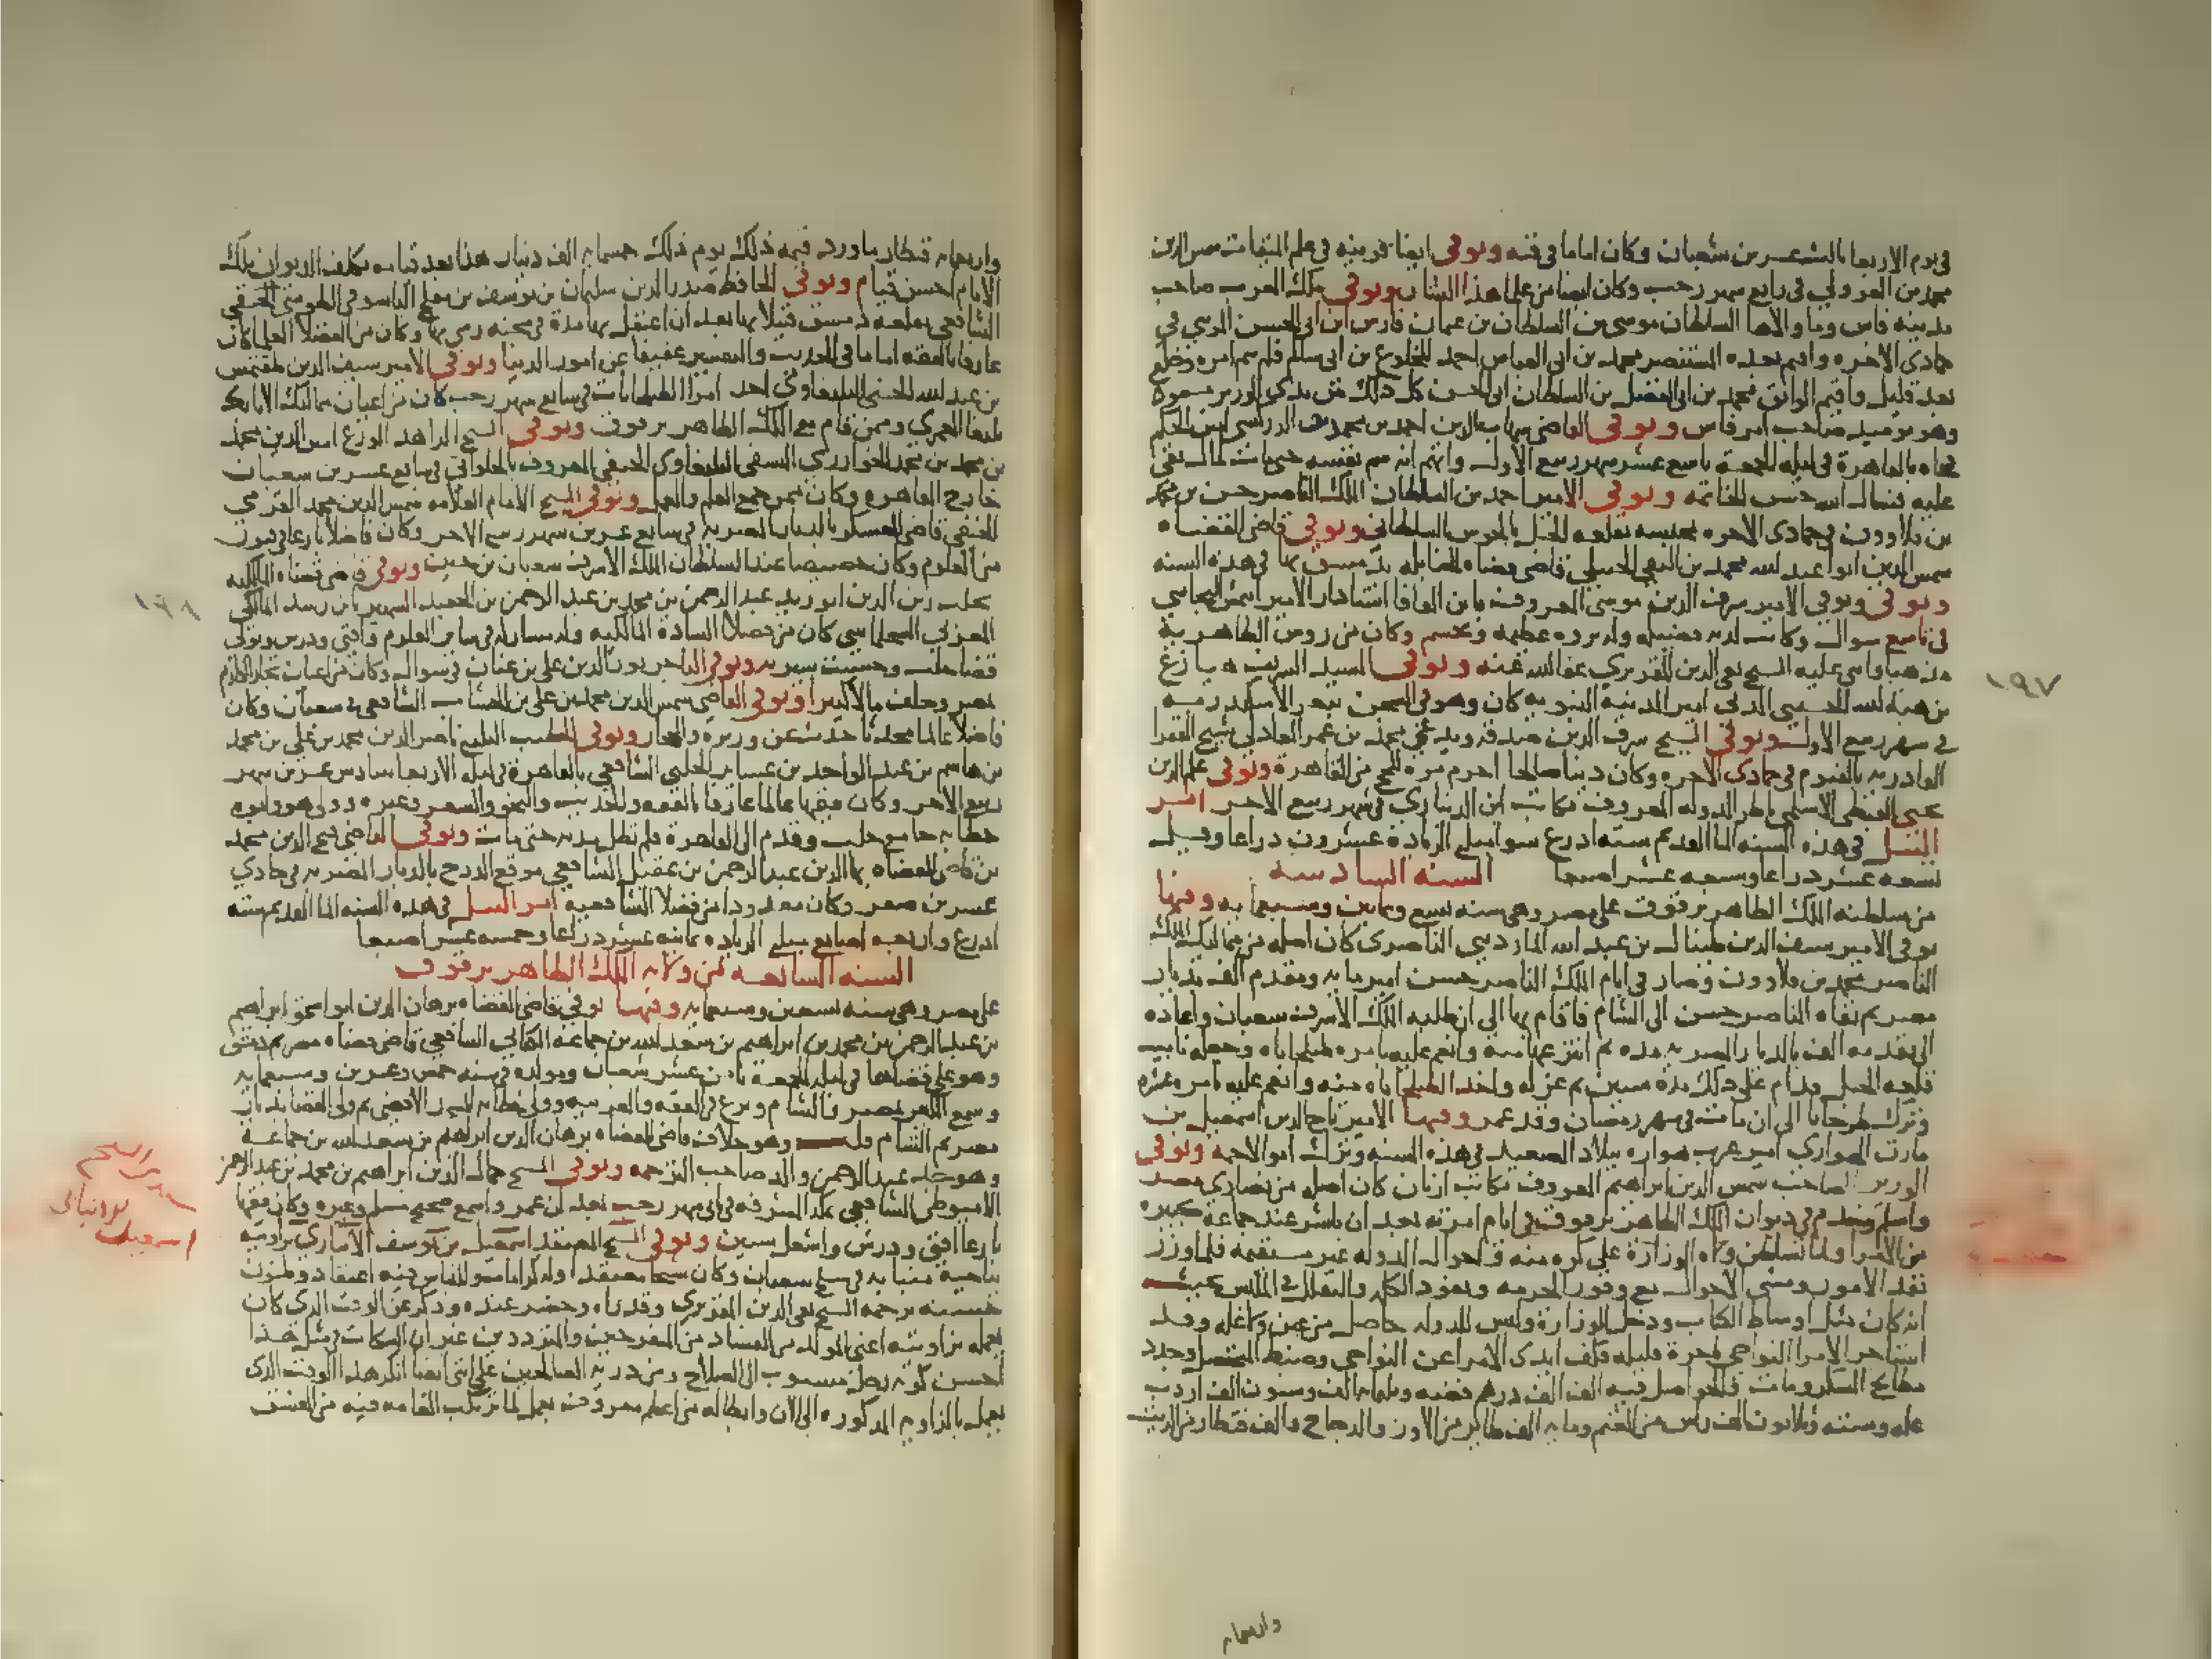 فى يوم الاربعا ثالث عشرين شعبان وكان اماما فى فنه وتوفى ايضا قرينه فى علم الميقات شمس الدين
محمد بن الغزولى فى رابع شهر رجب وكان ايضا من علما هذا الشان وتوفى ملك الغرب صاحب
مدينه فاس وما والاها السلطان موسى بن السلطان بن عنان فارس ابن ابى الحسن المرينى فى
جمادى الاخره واقيم بعده المستنصر محمد بن ابى العباس احمد المخلوع بن ابى سالم فلم يتم امره وخلع
بعد قليل واقيم الواثق محمد بن ابى الفضل بن السلطان ابى الحسن كل ذلك من يدى الوزير مسعود
وهو يوميد صاحب امر فاس وتوفى القاضى شهاب الدين احمد بن محمد
فجاه بالقاهرة فى ليله الجمعة تاسع عشر شهر ربيع الاول واتهم انه سم نفسه حتى مات لمال بقى
عليه فنسال الله حسن الخاتمه وتوفى الامير احمد بن السلطان الملك الناصر حسن بن محمد
بن قلاوون فى جمادى الاخره بمحبسه بقلعه الجبل بالحوش السلطانى وتوفى قاضى القضاه
شمس الدين ابوا عبد الله محمد بن التقى الحنبلى قاضى قضاه الحنابله بدمشق بها فى هذه السنه
وتوفى وتوفى الامير شرف الدين موسى المعروف بابن الفافا استادار الامير ايتمش البجاسى
فى تاسع شوال وكانت لديه فضيله وله ثروه عظيمه وحشم وكان من روس الظاهرية
مذهبا واثنى عليه الشيخ تقى الدين المقريزى عفا الله عنه وتوفى السيد الشريف هيازع
بن هبه الله الحسينى المدنى امير المدينه النبويه كان وهو فى السجن بثغر الاسكندريه
فى شهر ربيع الاول وتوفى الشيخ شرف الدين صدقه ويدعى محمد بن عمر العادلى شيخ الفقرا
القادريه بالفيوم فى جمادى الاخره وكان دينا صالحا احرم مره للحج من القاهرة وتوفى علم الدين
يحيى القبطى الاسلمى ناظر الدوله المعروف بكاتب ابن الدينارى فى شهر ربيع الاخر امر
النيل فى هذه السنه الما القديم سته ادرع سوا مبلغ الزيادة عشرون دراعا وقيل
تسعه عشر دراعا وسبعه عشر اصبعا السنه السادسه
من سلطنه الملك الظاهر برقوق على مصر وهى سنه تسع وثمانين وسبعمايه وفيها
توفى الامير سيف الدين طينال بن عبد الله الماردينى الناصرى كان اصله من مماليك الملك
الناصر محمد بن قلاوون وصار فى ايام الملك الناصر حسن امير مايه ومقدم الف بديار
مصر ثم نفاه الناصر حسن الى الشام فاقام بها الى ان طلبه الملك الاشرف شعبان واعاده
الى تقدمه الف بالديار المصريه مده ثم انتزعها منه وانعم عليه بامره طبلخاناه وجعله نايب
قلعه الجبل فدام على ذلك مدة سنين ثم عزله واخذ الطبلخاناه منه وانعم عليه بامره عشره
وترك طرخانا الى ان مات فى شهر رمضان وقد عمر وفيها الامير تاج الدين اسمعيل بن
مازن الهوارى امير عرب هواره ببلاد الصعيد فى هذه السنه وترك اموالا جمه وتوفى
الوزير الصاحب شمس الدين ابراهيم المعروف بكاتب ارنان كان اصله من نصارى مصر
واسلم وخدم فى ديوان الملك الظاهر برقوق فى ايام امرته بعد ان باشر عند جماعة كبيره
من الامرا ولما تسلطن ولاه الوزارة على كره منه واحوال الدوله غير مستقيمه فلما وزر
نفد الامور ومشى الاحوال مع وفور الحرمه ونفود الكلمه والتقلل فى الملبس بحيث
انه كان مثل اوساط الكتاب ودخل الوزارة وليس للدوله حاصل من عين ولا غله وقد
استاجر الامرا النواحى باجرة قليله فكف ايدى الامرا عن النواحى وضبط المتحصل وجدد
مطابخ السكر ومات والحواصل فيه الف الف درهم فضه وثلمايه الف وستون الف اردب
غله وسته وثلاثون الف راس من الغنم ومايه الف طاير من الاوز والدجاج والف قنطار من الزيت
واربعمايه
١٩٧
واربعمايه قنطار ماورد قيمه ذلك يوم ذلك خمسمايه الف دينار هذا بعد قيامه بكلف الديوان تلك
الايام احسن قيام وتوفى الحافظ صدر الدين سليمان بن يوسف بن مفلح الياسوفى الطوسى الحنفى
الشافعى بقلعه دمشق قتيلا بها بعد ان اعتقل بها مدة فى محنه رمى بها وكان من الفضلا العلما كان
عارفا بالفقه اماما فى الحديث والتفسير عفيفا عن امور الدنيا وتوفى الامير سيف الدين طقتمش
بن عبد الله الحسنى اليلبغاوى احد امرا الطبلخانات فى سابع شهر رجب كان من اعيان مماليك الاتابك
يلبغا العمرى وممن قام مع الملك الظاهر برقوق وتوفى الشيخ الزاهد الورع امين الدين محمد
بن محمد بن محمد الخوارزمى النسفى اليلبغاوى الحنفى المعروف بالخلواتى فى سابع عشرين شعبان
خارج القاهره وكان ممن جمع العلم والعمل وتوفى الشيخ الامام العلامه شمس الدين محمد القرمى
الحنفى قاضى العسكر بالديار المصريه فى سابع عشرين شهر ربيع الاخر وكان فاضلا بارعا فى فنون
من العلوم وكان خصيصا عند السلطان الملك الاشرف شعبان بن حسين وتوفى قاضى قضاه المالكيه
بحلب زين الدين ابو زيد عبد الرحمن بن محمد بن عبد الرحمن بن الحفيد الشهير بابن رشد المالكى
المغربى السجلماسى كان من فضلا السادة المالكيه وله مشاركه فى سائر العلوم وافتى ودرس وتولى
قضا حلب وحسنت سيرته وتوفى التاجر نور الدين على بن عنان فى شوال وكان من اعيان تجار الكارم
بمصر وخلف مالا كثيرا وتوفى القاضى شمس الدين محمد بن على بن الخشاب الشافعى فى شعبان وكان
فاضلا عالما محدثا حدث عن وزيره والحجار وتوفى الخطيب البليغ ناصر الدين محمد بن على بن محمد
بن هاشم بن عبد الواحد بن عساير الحلبى الشافعى بالقاهرة فى ليله الاربعا سادس عشرين شهر
ربيع الاخر وكان فقيها عالما عارفا بالفقه والحديث والنحو والشعر وغيره وولى هو وابوه
خطابه جامع حلب وقدم الى القاهرة فلم تطل مدته حتى مات وتوفى القاضى فتح الدين محمد
بن قاضى القضاه بها الدين عبد الرحمن بن عقيل الشافعى موقع الدرج بالديار المصريه فى حادى
عشرين صفر وكان معدودا من فضلا الشافعيه امر النيل فى هذه السنه الما القديم سته
ادرع واربعه اصابع مبلغ الزياده ثمانيه عشر دراعا وخمسه عشر اصبعا
السنه السابعه من ولايه الملك الظاهر برقوق
على مصر وهى سنه تسعين وسبعمايه وفيها توفى قاضى القضاه برهان الدين ابو اسحق ابراهيم
بن عبد الرحمن بن محمد بن ابراهيم بن سعد الله بن جماعه الكنانى الشافعى قاضى قضاه مصر ثم دمشق
وهو على قضاها فى ليله الجمعة ثامن عشر شعبان ومولده فى سنه خمس وعشرين وسبعمايه
وسمع الكثير بمصر والشام وبرع فى الفقه والعربيه وولى خطابه المسجد الاقصى ثم ولى القضا بديار
مصر ثم الشام قلت وهو خلاف قاضى القضاه برهان الدين ابراهيم بن سعد الله بن جماعه
وهو جد عبد الرحمن والد صاحب الترجمه وتوفى الشيخ جمال الدين ابراهيم بن محمد بن عبد الرحمن
الاميوطى الشافعى بمكه المشرفه فى ثانى شهر رجب بعد ان عمر واسمع صحيح مسلم وغيره وكان فقيها
بارعا افتى ودرس واشغل سنين وتوفى الشيخ المعتقد اسمعيل بن يوسف الانبابى بزاويته
بناحية منبابه فى سلخ شعبان وكان شيخا معتقدا وله كرامات وللناس فيه اعتقاد وظنون
حسنه ترجمه الشيخ تقى الدين المقريزى وقد راه وحضر عنده وذكر عن الوقت الذى كان
يعمله بزاويته اعنى المولد من الفساد من المفرجين والمترددين غير ان السكات فى مثل هذا
احسن كونه رجل منسوب الى الصلاح ومن ذريه الصالحين على انى ايضا انكر هذا الوقت الذى
يعمل بالزاويه المذكوره الى الان وابطاله من اعظم معروف يعمل لما يرتكب العامه فيه من الفسق
١٩٨
سيدى الشيخ
اسمعيل الانبابى